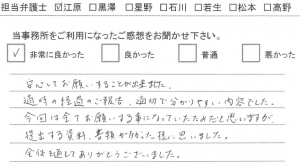 担当弁護士 ☑江原 □黒澤 □星野 □石川 □若生 □松本 □高野
当事務所をご利用になったご感想をお聞かせ下さい。
☑ 非常に良かった □ 良かった □ 普通 □ 悪かった
安心してお願いすることが出来ました。
適時の経過のご報告、適切で分かりやすい内容でした。
今回は全てお願いする事になっていたためだと思いますが、
提出する資料、書類が少なかった様に思いました。
全体を通してありがとうございました。